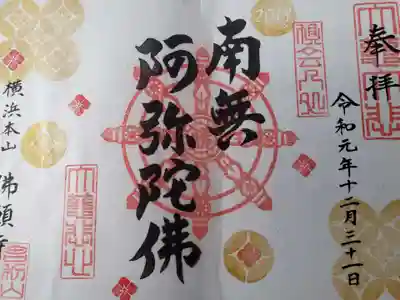 奉拝
令和元年十二月三十一日
2019
南無
阿弥陀佛
横浜本山
佛願寺